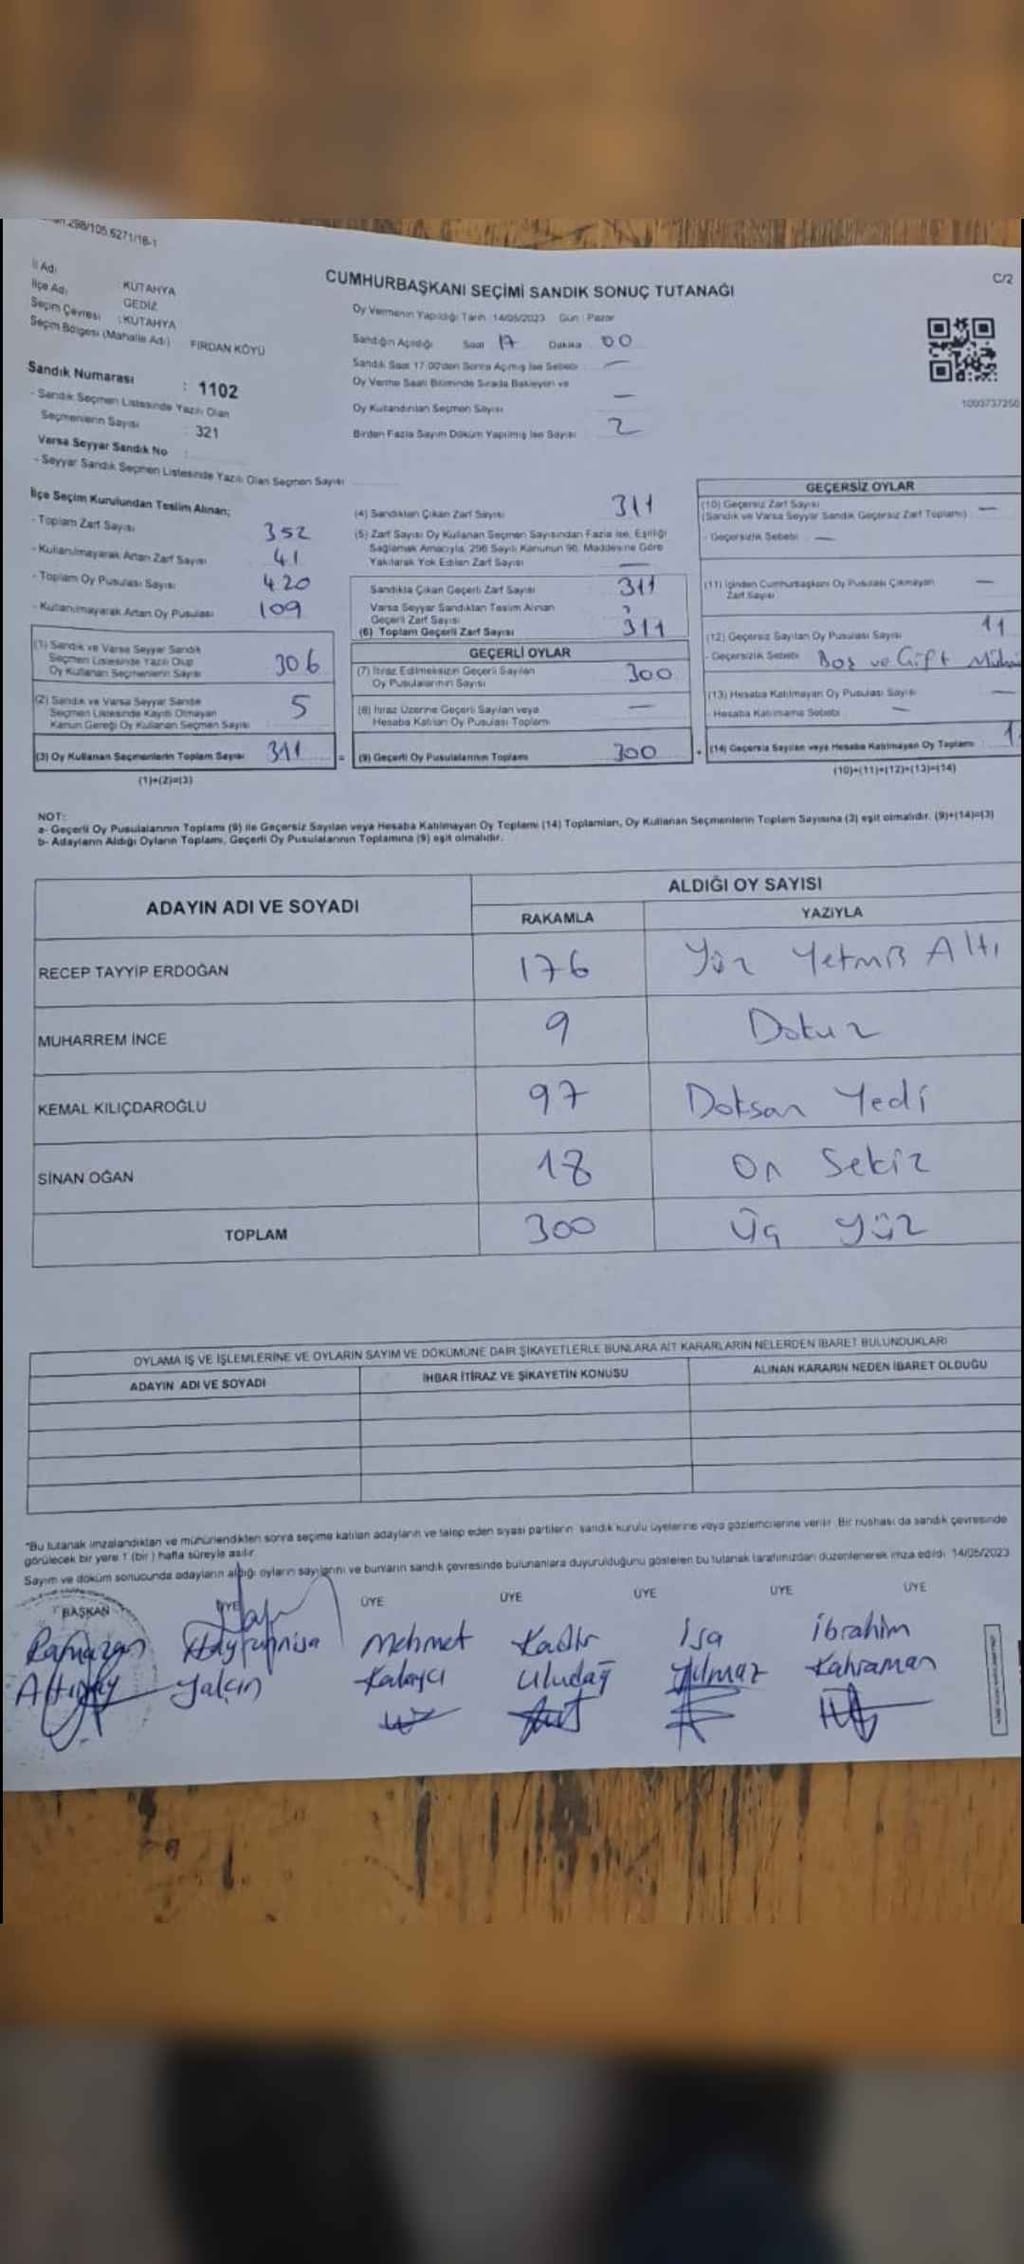 298/105.6271/16-1
İl Adı : KÜTAHYA
İlçe Adı : GEDİZ
Seçim Çevresi : KÜTAHYA
Seçim Bölgesi (Mahalle Adı) FIRDAN KÖYÜ
Sandık Numarası : 1102
- Sandık Seçmen Listesinde Yazılı Olan
Seçmenlerin Sayısı : 321
Varsa Seyyar Sandık No :
- Seyyar Sandık Seçmen Listesinde Yazılı Olan Seçmen Sayısı
C/2
CUMHURBAŞKANI SEÇİMİ SANDIK SONUÇ TUTANAĞI
Oy Vermenin Yapıldığı Tarih: 14/05/2023 Gün : Pazar
Sandığın Açıldığı Saat 17 Dakika 00
Sandık Saat 17.00'den Sonra Açılmış İse Sebebi —
Oy Verme Saati Bitiminde Sırada Bekleyen ve
Oy Kullandırılan Seçmen Sayısı —
Birden Fazla Sayım Döküm Yapılmış İse Sayısı 2
1093737250
İlçe Seçim Kurulundan Teslim Alınan;
- Toplam Zarf Sayısı 352
- Kullanılmayarak Artan Zarf Sayısı 41
- Toplam Oy Pusulası Sayısı 420
- Kullanılmayarak Artan Oy Pusulası 109
(1) Sandık ve Varsa Seyyar Sandık
Seçmen Listesinde Yazılı Olup
Oy Kullanan Seçmenlerin Sayısı 306
(2) Sandık ve Varsa Seyyar Sandık
Seçmen Listesinde Kayıtlı Olmayan
Kanun Gereği Oy Kullanan Seçmen Sayısı 5
(3) Oy Kullanan Seçmenlerin Toplam Sayısı 311 =
(1)+(2)=(3)
(4) Sandıktan Çıkan Zarf Sayısı 311
(5) Zarf Sayısı Oy Kullanan Seçmen Sayısından Fazla İse, Eşitliği
Sağlamak Amacıyla, 298 Sayılı Kanunun 98. Maddesine Göre
Yakılarak Yok Edilen Zarf Sayısı —
Sandıkta Çıkan Geçerli Zarf Sayısı 311
Varsa Seyyar Sandıktan Teslim Alınan
Geçerli Zarf Sayısı
(6) Toplam Geçerli Zarf Sayısı 311
GEÇERLİ OYLAR
(7) İtiraz Edilmeksizin Geçerli Sayılan
Oy Pusulalarının Sayısı 300
(8) İtiraz Üzerine Geçerli Sayılan veya
Hesaba Katılan Oy Pusulası Toplamı —
(9) Geçerli Oy Pusulalarının Toplamı 300 +
GEÇERSİZ OYLAR
(10) Geçersiz Zarf Sayısı —
(Sandık ve Varsa Seyyar Sandık Geçersiz Zarf Toplamı)
- Geçersizlik Sebebi —
(11) İçinden Cumhurbaşkanı Oy Pusulası Çıkmayan
Zarf Sayısı —
(12) Geçersiz Sayılan Oy Pusulası Sayısı 11
- Geçersizlik Sebebi Boş ve Çift
(13) Hesaba Katılmayan Oy Pusulası Sayısı —
- Hesaba Katılmama Sebebi —
(14) Geçersiz Sayılan veya Hesaba Katılmayan Oy Toplamı
(10)+(11)+(12)+(13)=(14)
NOT:
a- Geçerli Oy Pusulalarının Toplamı (9) ile Geçersiz Sayılan veya Hesaba Katılmayan Oy Toplamı (14) Toplamları, Oy Kullanan Seçmenlerin Toplam Sayısına (3) eşit olmalıdır. (9)+(14)=(3)
b- Adayların Aldığı Oyların Toplamı, Geçerli Oy Pusulalarının Toplamına (9) eşit olmalıdır.
ADAYIN ADI VE SOYADI
ALDIĞI OY SAYISI
RAKAMLA YAZIYLA
RECEP TAYYİP ERDOĞAN 176 Yüz Yetmiş Altı
MUHARREM İNCE 9 Dokuz
KEMAL KILIÇDAROĞLU 97 Doksan Yedi
SİNAN OĞAN 18 On Sekiz
TOPLAM 300 Üç yüz
OYLAMA İŞ VE İŞLEMLERİNE VE OYLARIN SAYIM VE DÖKÜMÜNE DAİR ŞİKAYETLERLE BUNLARA AİT KARARLARIN NELERDEN İBARET BULUNDUKLARI
ADAYIN ADI VE SOYADI İHBAR İTİRAZ VE ŞİKAYETİN KONUSU ALINAN KARARIN NEDEN İBARET OLDUĞU
"Bu tutanak imzalandıktan ve mühürlendikten sonra seçime katılan adayların ve talep eden siyasi partilerin sandık kurulu üyelerine veya gözlemcilerine verilir. Bir nüshası da sandık çevresinde
görülecek bir yere 1 (bir) hafta süreyle asılır.
Sayım ve döküm sonucunda adayların aldığı oyların sayılarını ve bunların sandık çevresinde bulunanlara duyurulduğunu gösteren bu tutanak tarafımızdan düzenlenerek imza edildi. 14/05/2023
BAŞKAN ÜYE ÜYE ÜYE ÜYE ÜYE ÜYE
Ramazan Hayrunnisa Mehmet Kadir İsa İbrahim
Altınay Yalçın Kalaycı Uludağ Yılmaz Kahraman